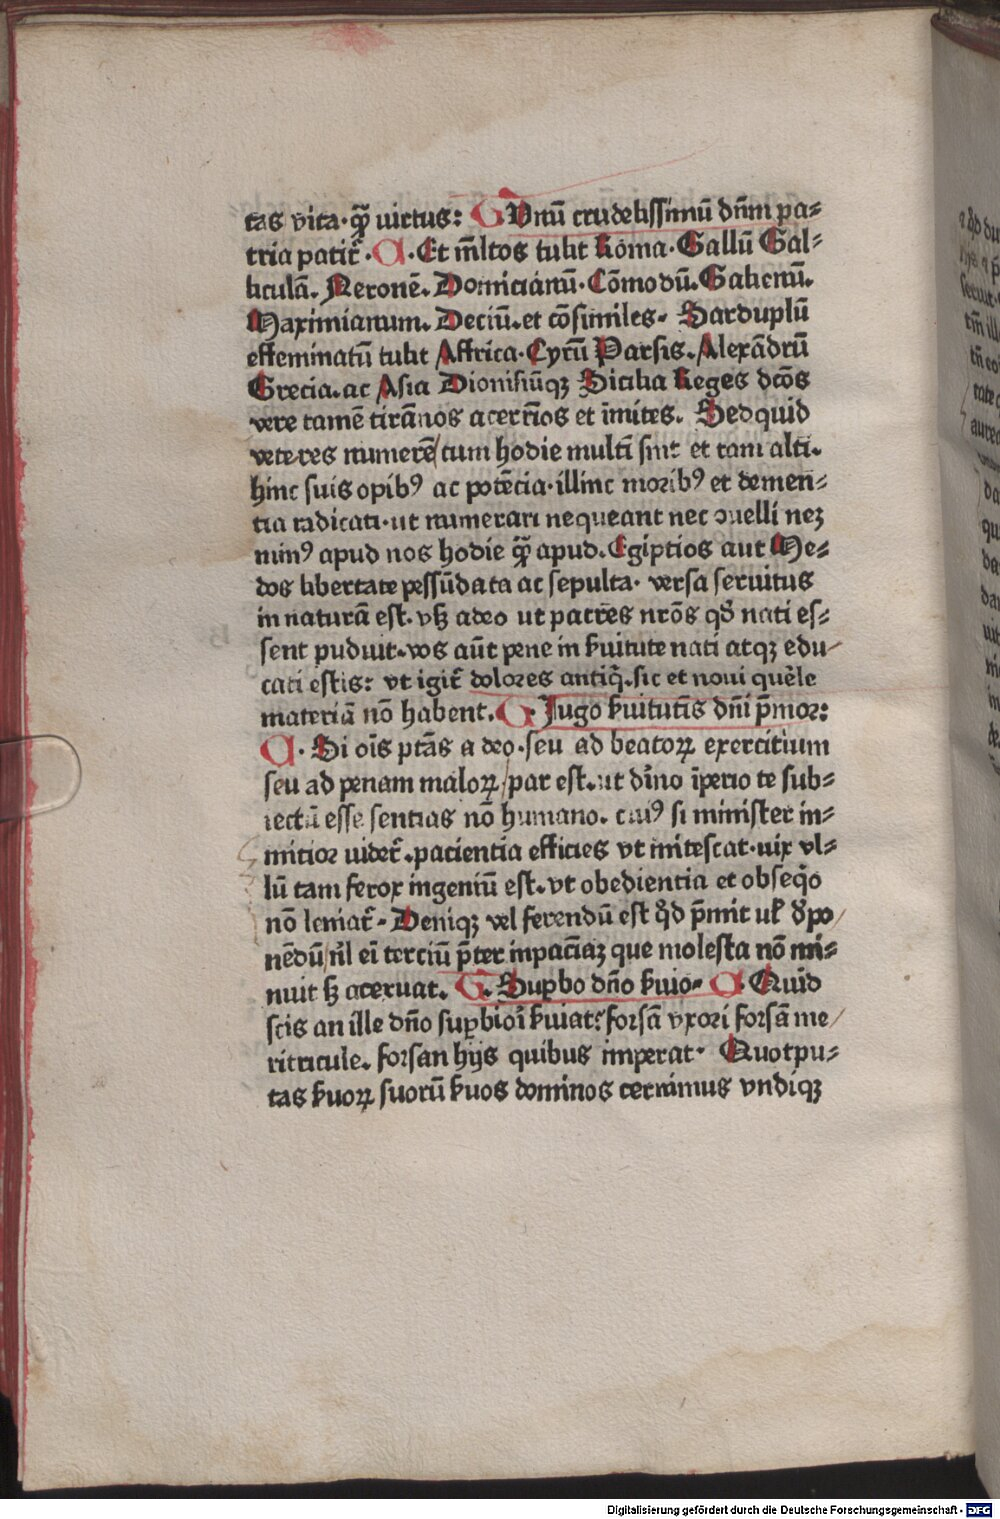 tas vita · quā uictus: G Unū crudelissimū dn̄m pa⸗
tria patit̄ · A · Et m̄ltos tulit Roma · Gallū Gal⸗
liculā. Neronē. Domicianū · Cōmodū. Galienū.
Maximianum. Deciū. et cōsimiles. Sarduplū
effeminatū tulit Affrica · Cyrū Parsis. Alexādrū
Grecia. ac Asia Dionisiūqꝫ Sicilia Reges dc̄os
vere tamē tirānos acerrīos et īmites. Sed quid
veteres numerē / cum hodie multi sint et tam alti.
hinc suis opibꝰ ac potēcia · illinc moribꝰ et demen⸗
tia radicati · ut numerari nequeant nec ↄuelli neꝫ
minꝰ apud nos hodie quā apud. Egiptios aut Me⸗
dos libertate pessūdata ac sepulta · versa seruitus
in naturā est. vsꝫ adeo ut patres nrōs qd̛ nati es⸗
sent puduit. vos aūt pene in ẜuitute nati atqꝫ edu⸗
cati estis: vt igit̄ dolores antiq̄. sic et noui quēle
materiā nō habent. G · Jugo ẜuitutis dn̄i p̄mor:
A · Si oīs ptās a deo · seu ad beatoꝝ exercitium
seu ad penam maloꝝ / par est. ut dīno īperio te sub⸗
iectū esse sentias nō humano. cuiꝰ si minister in⸗
mitior uidet̄. paciencia efficies vt mitescat · uix vl⸗
lū tam ferox ingeniū est. vt obedientia et obseq̄o
nō leniat̄. Deniqꝫ vel ferendū est qd̛ p̄mit ul̛ dp̄o /
nēdū / nīl ei terciū p̄ter inpaciāꝫ que molesta nō mi⸗
nuit sꝫ acexuat. G. Suꝑbo dn̄o ẜuio. A. Quid
scis an ille dn̄o suꝑbiori ẜuiat: forsā vxori forsā me /
ritricule. forsan hijs quibus imperat · Quot pu⸗
tas ẜuoꝝ suorū ẜuos dominos cernimus vndiqꝫ
Digitalisierung gefördert durch die Deutsche Forschungsgemeinschaft - DFG